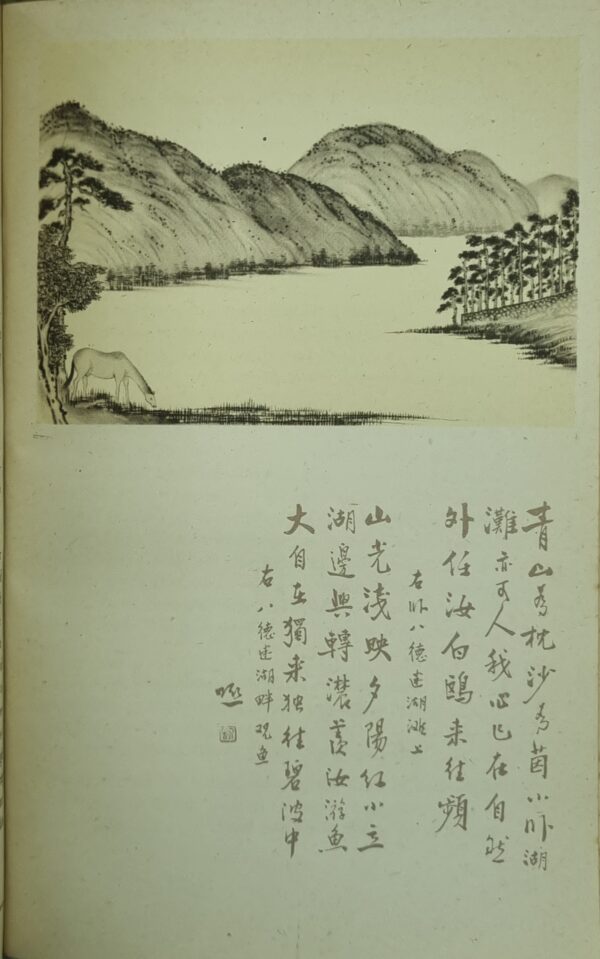 青山為枕沙為茵小卧湖
灘亦可人我心已在自然
外任汝白鷗来往頻
右卧八德建湖灘上
山光淺映夕陽红小立
湖邊興轉濃羨汝游魚
大自在獨来独往碧波中
右八德建湖畔观魚